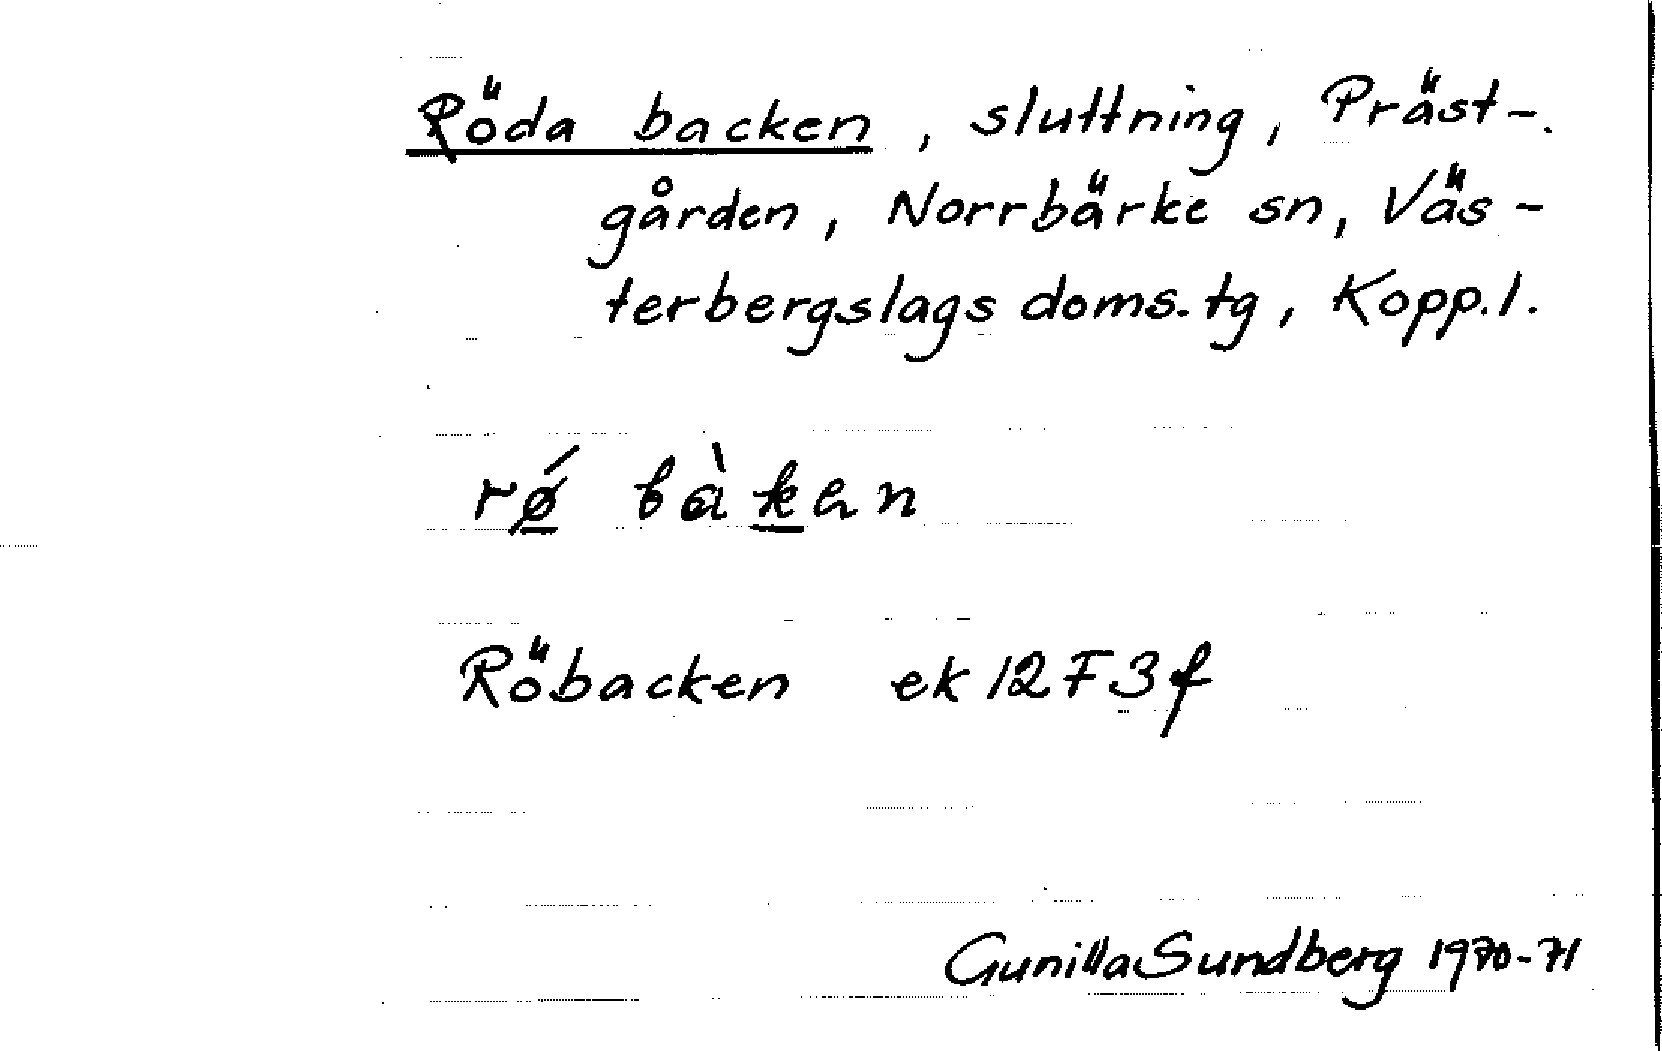 Röda backen, sluttning, Präst-
gården, Norrbärke sn, Väs-
terbergslags doms.tg, Kopp.l.
rǿ bàkan
Röbacken ek 12F3f
Gunilla Sundberg 1970-71